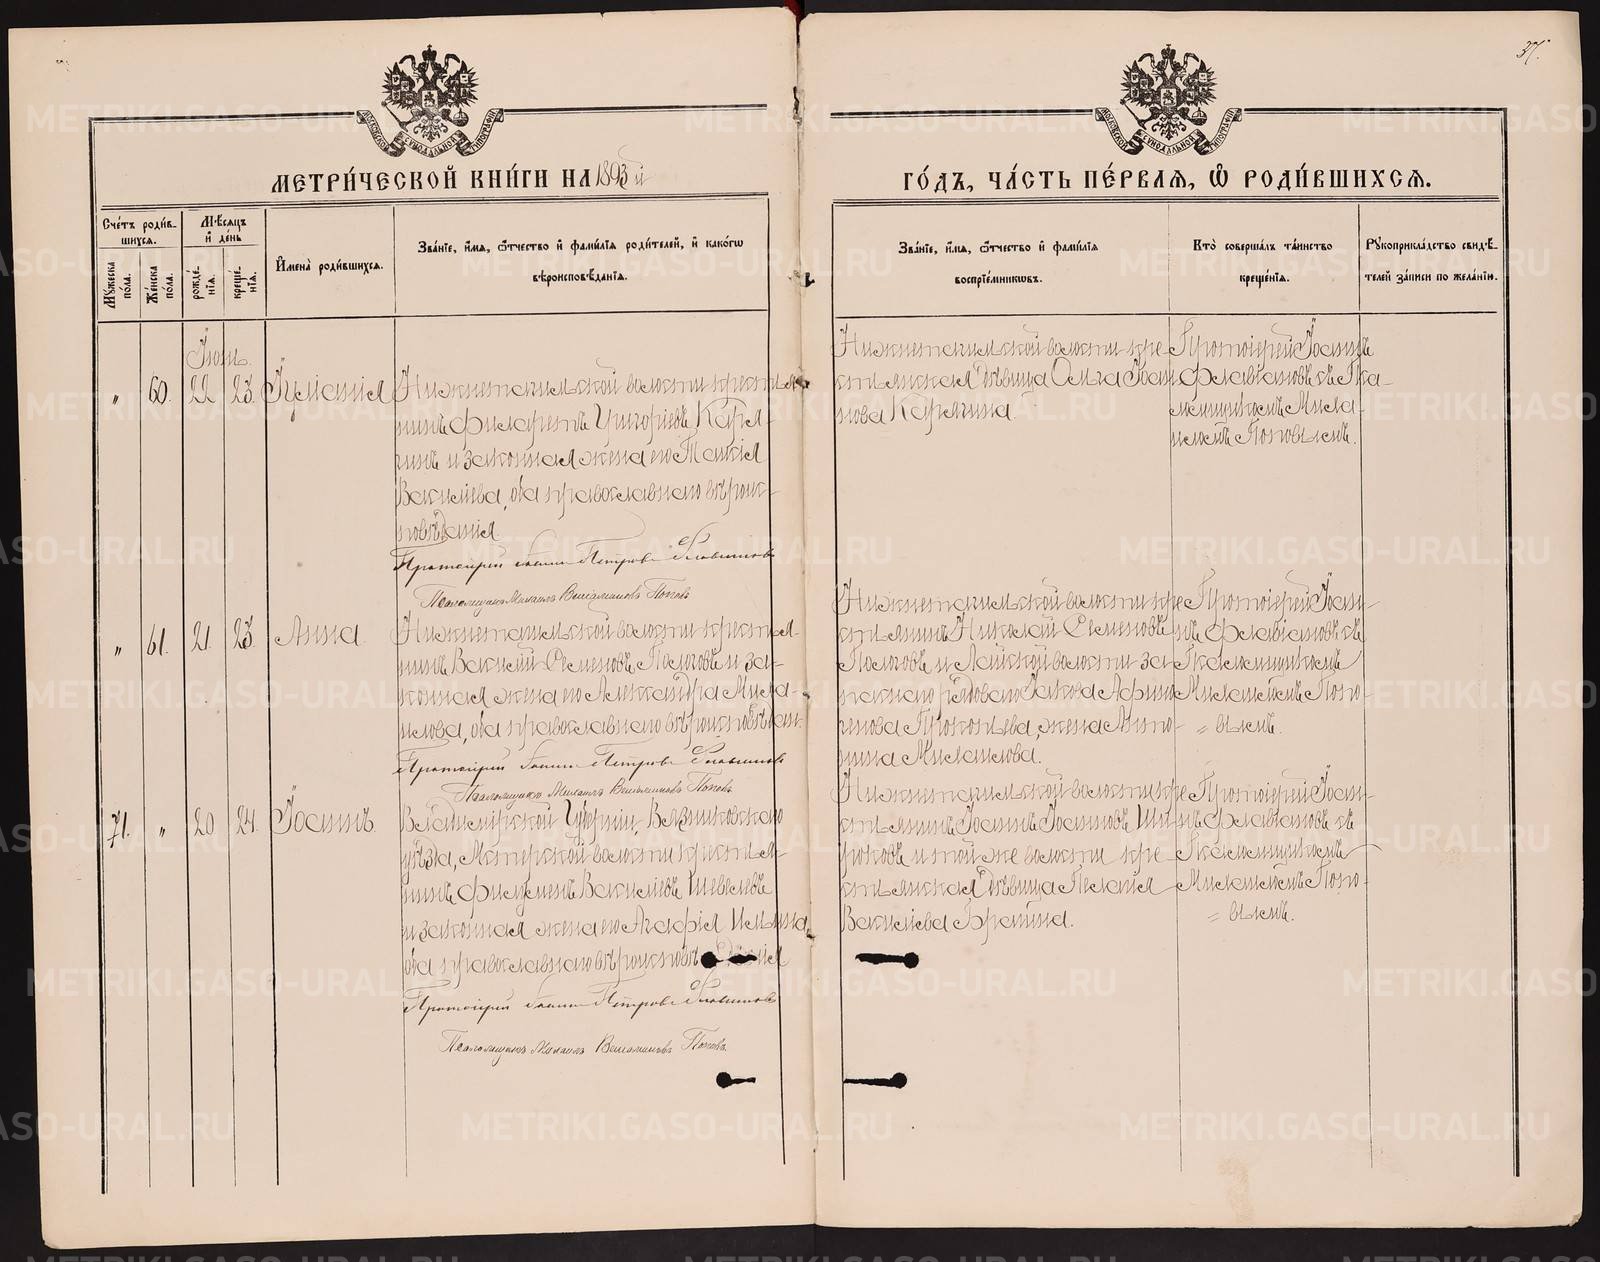 37.
МЕТРИ́ЧЕСКОЙ КНИ́ГИ НА 1893й
ГО́ДЪ, ЧА́СТЬ ПЕ́РВАѦ, Ѽ РОДИ́ВШИХСѦ.
МОСКОВСКОЙ СѴНОДАЛЬНОЙ ТИПОГРАФІИ
МОСКОВСКОЙ СѴНОДАЛЬНОЙ ТИПОГРАФІИ
Сче́тъ роди́в-
шихся.
Му́жеска по́ла.
Же́нска по́ла.
Мѣсяцъ
и де́нь
рожде́-
нія.
креще́-
нія.
Имена̀ роди́вшихся.
Зва́ніе, и́мя, ѻ҆́тчество и҆ фами́лія роди́телей, и҆ како́гѡ
вѣроисповѣ́данія.
Зва́ніе, и́мя, ѻ҆́тчество и҆ фами́лія
воспріе́мникѡвъ.
Кто̀ соверша́лъ та́инство
креще́нія.
Рꙋкоприкла́дство свидѣ́-
телей за́писи по жела́нію.
Іюнь.
„ 60. 22 23. Іуліанія
Нижнетагильской волости крестья-
нинъ Филаретъ Григоріевъ Каря-
гинъ и законная жена его Таисія
Василіева, оба православнаго вѣроис-
повѣданія
Протоіерей Іоаннъ Петровъ Флавіановъ
Псаломщикъ Михаилъ Веніаминовъ Поповъ
Нижнетагильской волости кре-
стьянская дѣвица Ольга Іоан-
нова Карягина.
Протоіерей Іоаннъ
Флавіановъ съ Пса-
ломщикомъ Миха-
иломъ Поповымъ.
„ 61. 21. 23. Анна
Нижнетагильской волости крестья-
нинъ Василій Семеновъ Пологовъ и за-
конная жена его Александра Миха-
илова, оба православнаго вѣроисповѣдан.
Протоіерей Іоаннъ Петровъ Флавіановъ
Псаломщикъ Михаилъ Веніаминовъ Поповъ
Нижнетагильской волости кре
стьянинъ Николай Семеновъ
Пологовъ и Лайской волости за-
паснаго рядоваго Іакова
Прокопьева, жена Анто-
нина Михаилова.
Протоіерей Іоан-
нъ Флавіановъ съ
Псаломщикомъ
Михаиломъ Попо-
= вымъ.
71. „ 20 24. Іоаннъ
Владимірской Губерніи, Вязниковскаго
уѣзда, Мстерской волости крестья-
нинъ Филимонъ Василіевъ Шевелевъ
и законная жена его Агафія Ильина,
оба православнаго вѣроисповѣданія
Протоіерей Іоаннъ Петровъ Флавіановъ
Псаломщикъ Михаилъ Веніаминовъ Поповъ
Нижнетагильской волости кре
стьянинъ Іоаннъ Іоанновъ Ши-
роковъ и той же волости кре-
стьянская дѣвица Пелагія
Василіева
Протоіерей Іоан-
нъ Флавіановъ съ
Псаломщикомъ
Михаиломъ Попо-
= вымъ.
METRIKI.GASO-URAL.RU